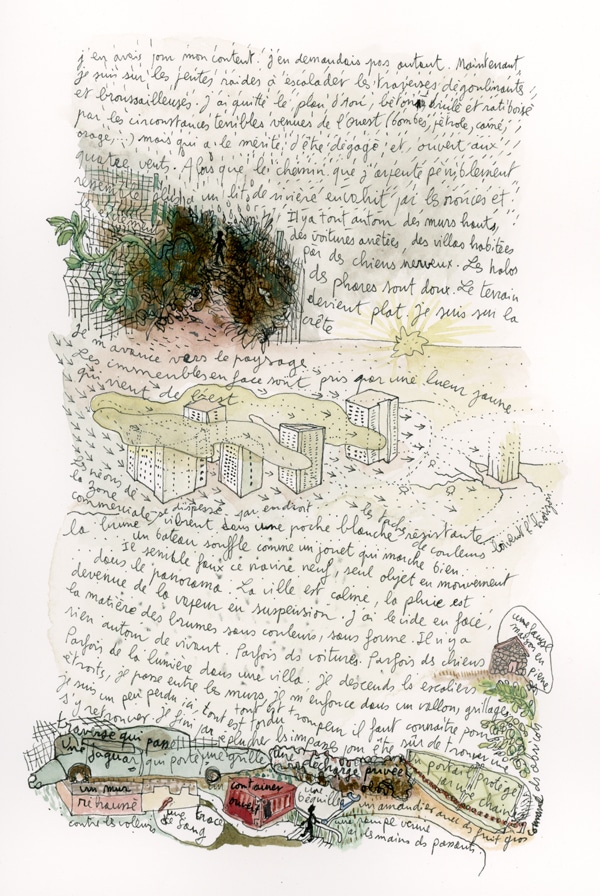 j'en avais pour mon content. j'en demandais pas autant. Maintenant,
je suis sur les pentes raides à escalader les traverses dégoulinantes
et broussailleuses. J'ai quitté le plan d'Aou, bétonné brulé et ratiboisé
par les circonstances terribles venues de l'Ouest (bombes, pétrole, camé,
orage...) mais qui a le mérite d'être dégagé et ouvert aux
quatre vents. Alors que le chemin que j'arpente péniblement
ressemble plutôt à un lit de rivière envahit par les ronces et
Il y a tout autour des murs hauts,
des voitures arrêtées, des villas habitées
par des chiens nerveux. Les halos
des phares sont doux. Le terrain
devient plat. Je suis sur la
crête
je m'avance vers le paysage.
Les immeubles en face sont pris par une lueur jaune
qui vient de l'est
Les néons de
la zone
commerciale se dispersent par endroit
les taches résistantes
de couleurs
la brume vibrent dans une poche blanche
un bateau souffle comme un jouet qui marche bien.
Il semble faux ce navire neuf, seul objet en mouvement
dans le panorama. La ville est calme, la pluie est
devenue de la vapeur en suspension. j'ai le vide en face,
la matière des brumes sans couleurs, sans forme. Il n'y a
rien autour de vivant. Parfois des voitures. Parfois des chiens
Parfois de la lumière dans une villa. Je descends les escaliers
étroits, je passe entre les murs, je m'enfonce dans un vallon grillagé,
je suis un peu perdu ici, tout est + trompeur, il faut connaître pour
s'y retrouver, je fini par éplucher les impasses pour être sûr de trouver une
traverse qui passe
une fausse
maison en
pierre
une Jaguar
qui porte une grille
une
décharge privée
un portail protégé
par une
chaine
un mur
rehaussé
contre les voleurs
un container
ouvert
une trace
de sang
une
béquille
un amandier avec des fruits gros
une rampe vernie
par les mains des passants